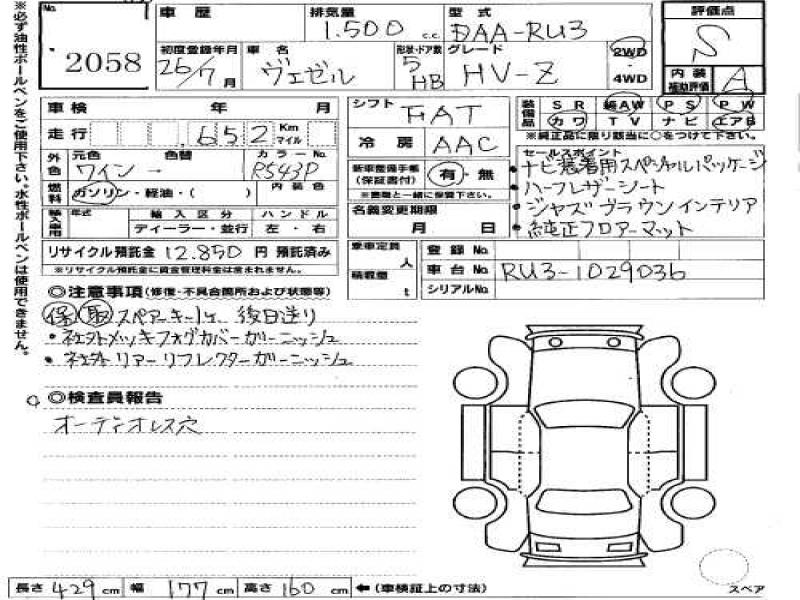 ※必ず油性ボールペンをご使用下さい。水性ボールペンは使用できません。
No.
2058
車歴
排気量
1.500 c.c.
型式
DAA-RU3
評価点
S
初度登録年月
26/7月
車名
ヴェゼル
形状・ドア数
5
HB
グレード
HV-Z
2WD
・
4WD
内装
補助評価
A
車検 年 月
シフト
FAT
装備品
SR 純AW PS PW
カワ TV ナビ エアB
※純正品に限り該当に○をつけて下さい。
走行 652 Km
マイル
冷房
AAC
外色
元色 色替 カラーNo.
ワイン → R543P
新車整備手帳
(保証書付)
有・無
※書類と一緒に保管下さい。
セールスポイント
・ナビ装着用スペシャルパッケージ
・ハーフレザーシート
・ジャズブラウンインテリア
・純正フロアーマット
燃料
ガソリン・軽油・( ) 内装色
輸入車用
年式 輸入区分 ハンドル
ディーラー・並行 左・右
名義変更期限
月 日
リサイクル預託金 12.850 円 預託済み
※リサイクル預託金に資金管理料金は含まれません。
乗車定員
人
積載量
t
登録No.
車台No. RU3-1029036
シリアルNo.
◎注意事項(修復・不具合箇所および状態等)
保 取 スペアーキー1ヶ 後日送り
・社外メッキフォグカバーガーニッシュ
・社外リアーリフレクターガーニッシュ
◎検査員報告
オーディオレス穴
スペア
長さ 429 cm 幅 177 cm 高さ 160 cm ←(車検証上の寸法)